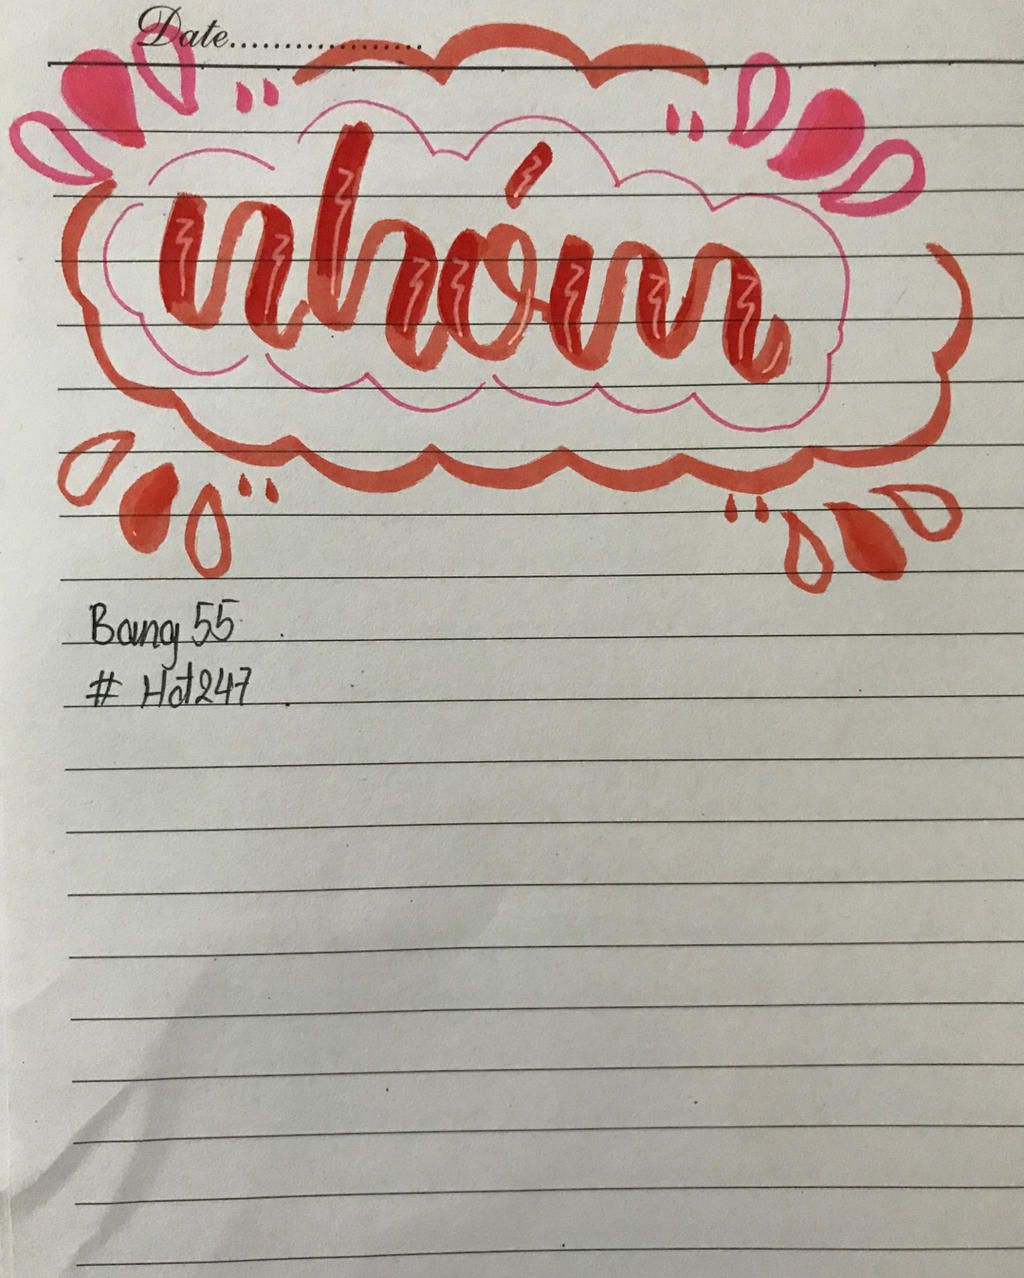 Date..................
nhóm
Bang 55
# Hot247